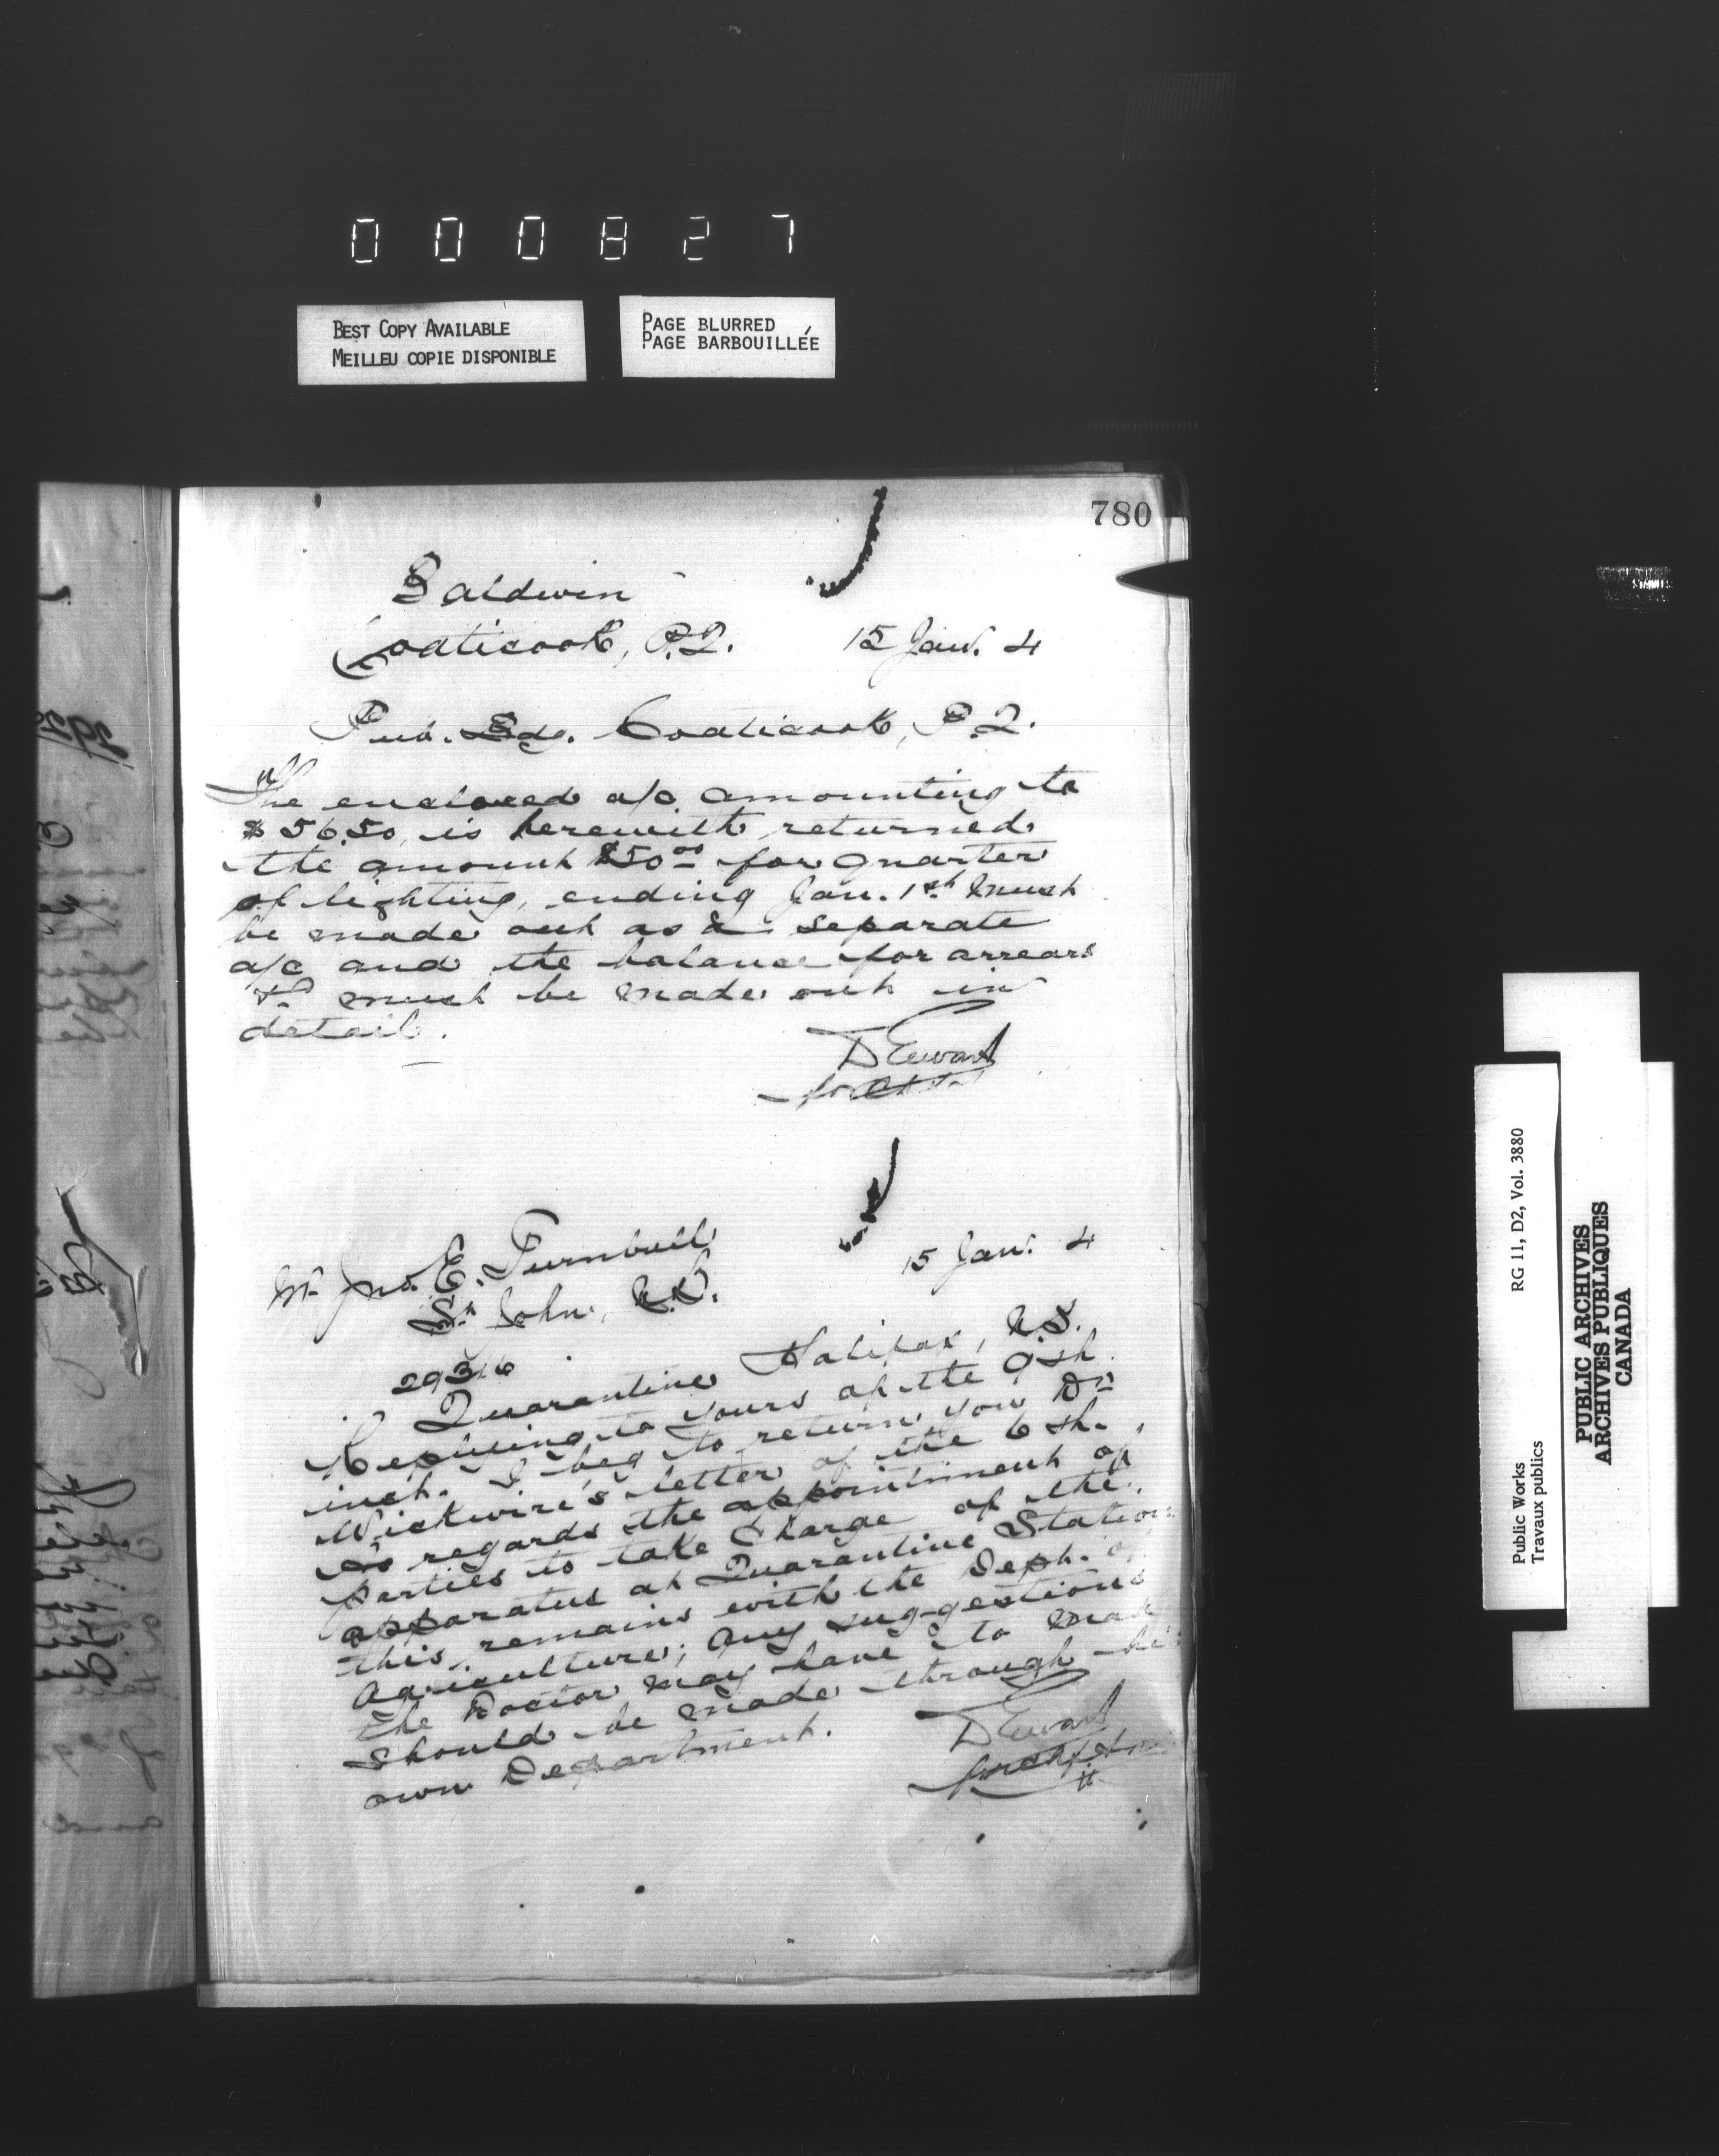 000827
BEST COPY AVAILABLE
MEILLEU COPIE DISPONIBLE
PAGE BLURRED
PAGE BARBOUILLÉE
780
Baldwin
Coaticook, P.Q. 15 Jan. 4
Pub. Bdg. Coaticook, P.Q.
The enclosed a/c amounting to
$56.50, is herewith returned
the amount $50.00 for quarter
of lighting, ending Jan. 1st must
be made out as a separate
a/c and the balance for arrears
&c must be made out in
detail.
D Ewart
Mr Jno. E. Turnbull
St John, N.B. 15 Jan. 4
29316
Quarantine Halifax, N.S.
Replying to yours of the 9th
inst. I beg to return you Dr
Wickwire's letter of the 6th.
As regards the appointment of
parties to take charge of the
apparatus at Quarantine Station
this remains with the Dept. of
Agriculture; any suggestions
the Doctor may have to make
should be made through his
own Department.
D Ewart
RG 11, D2, Vol. 3880
Public Works
Travaux publics
PUBLIC ARCHIVES
ARCHIVES PUBLIQUES
CANADA